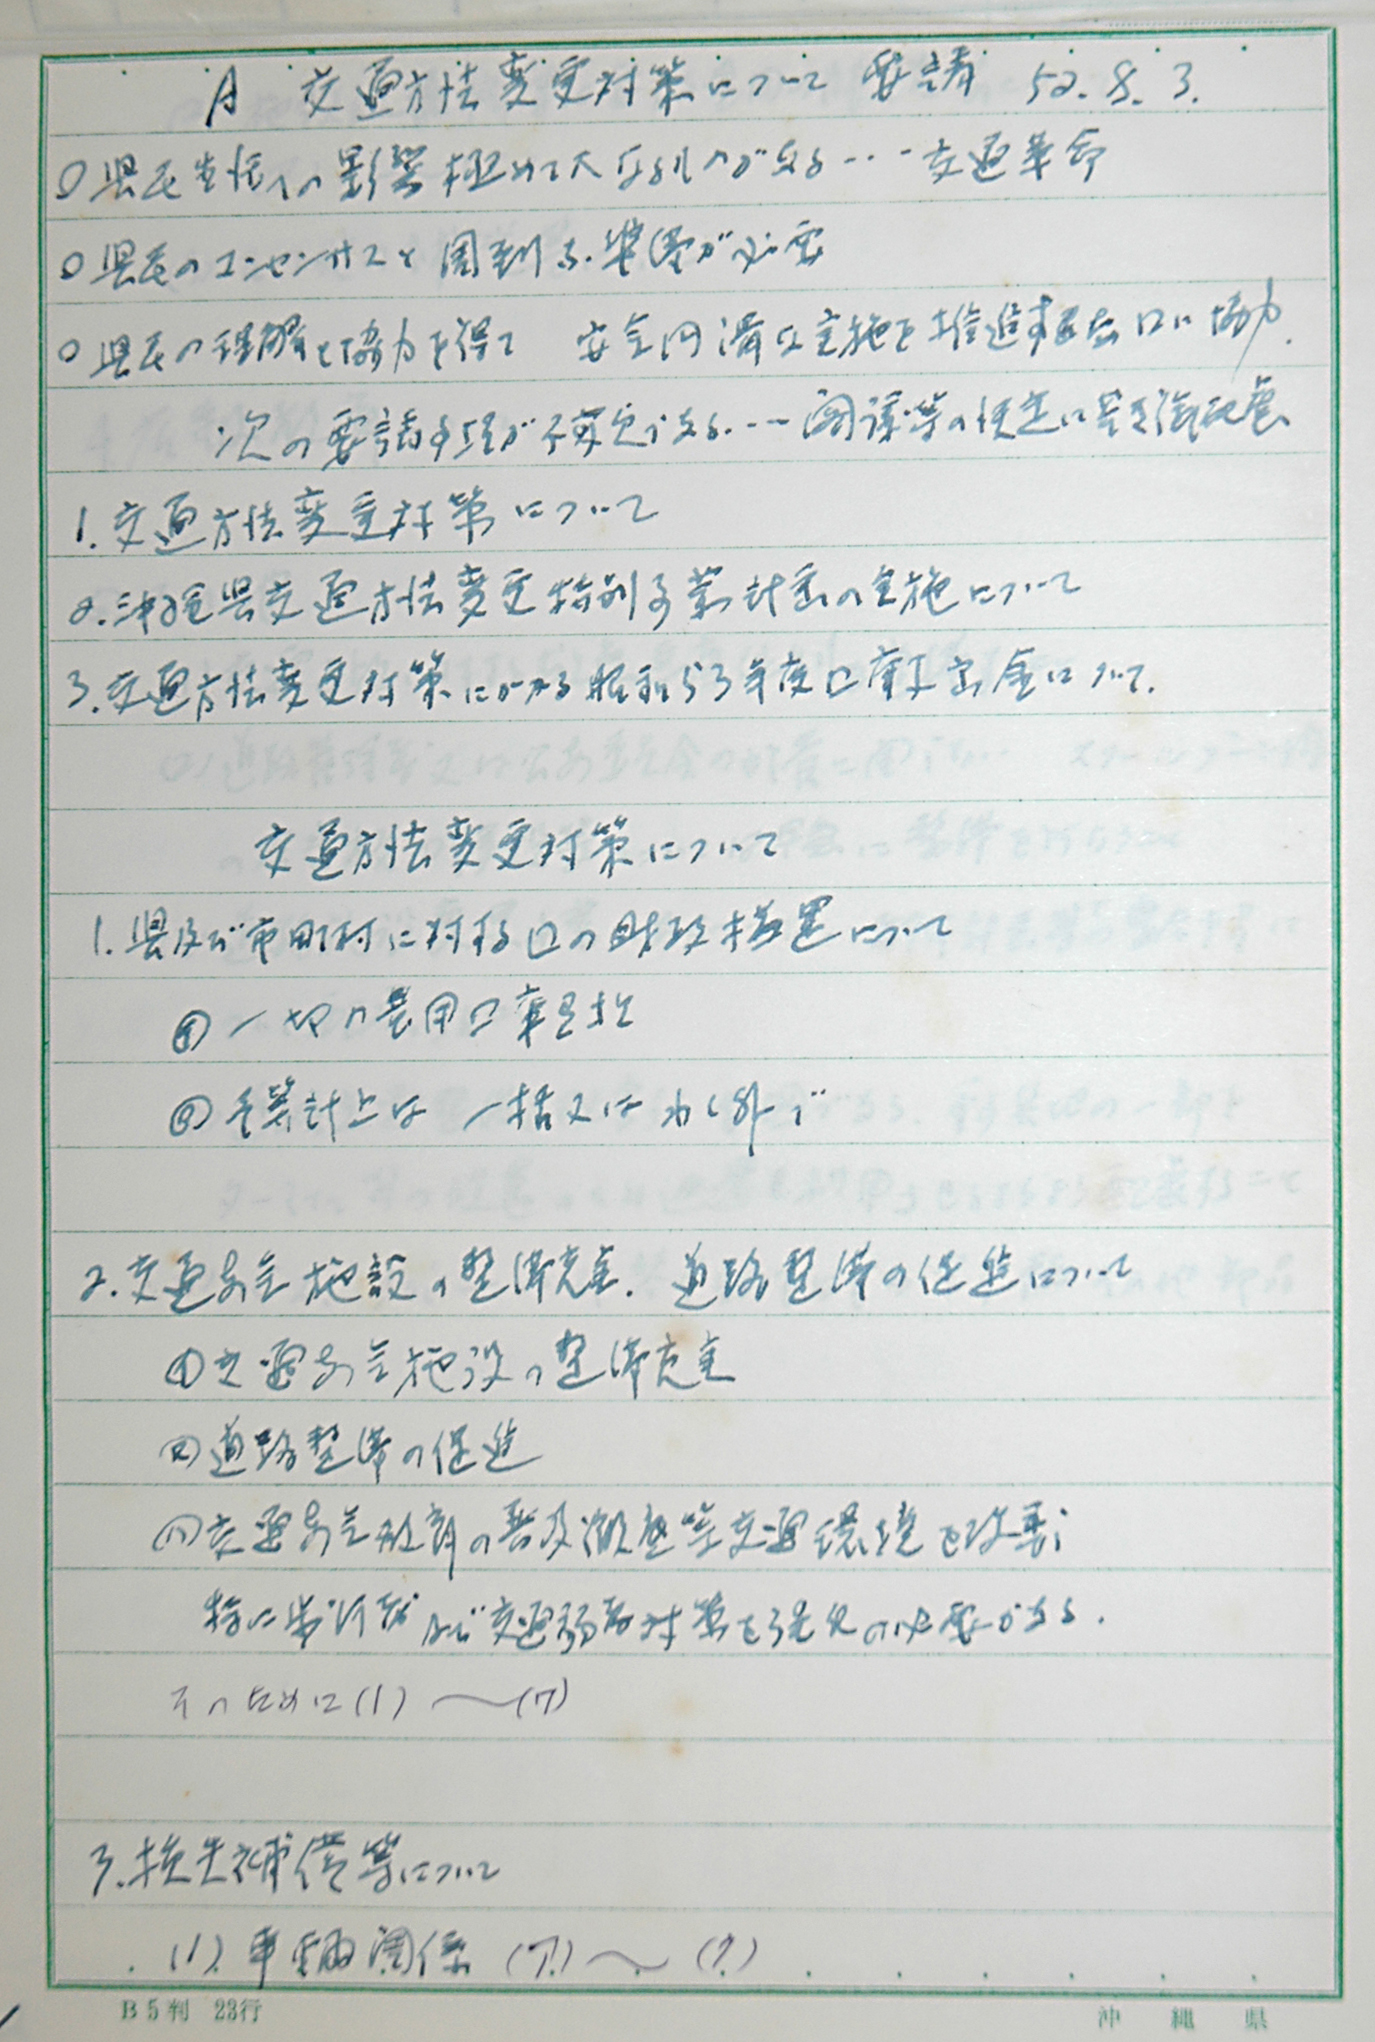 A 交通方法変更対策について 要請 52.8.3.
○県民生活への影響極めて大なるものがある…交通革命
○県民のコンセンサスと周到な準備が必要
○県民の理解と協力を得て 安全円滑な実施を推進する 口に協力.
次の要請事項が不可欠である…閣議等の決定に 配慮
1.交通方法変更対策について
2.沖縄県交通方法変更特別事業計画の実施について
3.交通方法変更対策にかかる昭和53年度口庫支出金について.
交通方法変更対策について
1.県及び市町村に対する口の財政措置について
①一切の費用口庫負担
②予算計上は 一括又はわく外で
2.交通安全施設の整備充実.道路整備の促進について
①交通安全施設の整備充実
(ロ)道路整備の促進
(ハ)交通安全教育の普及徹底等交通環境を改善し
特に歩行者など交通弱者対策を強化の必要がある.
そのために(1)〜(7)
3.損失補償等について
(1)車輌関係 (ア)〜(ク)
B5判 23行
沖縄県